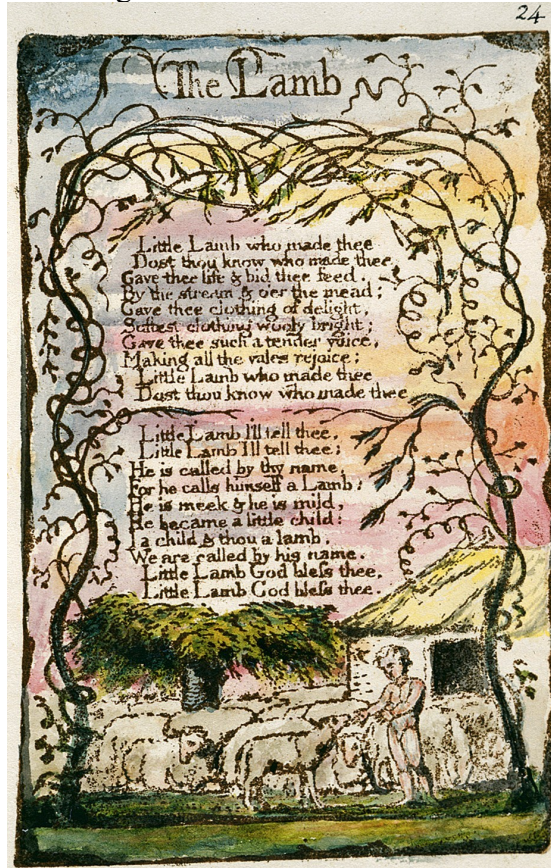 24
The Lamb
Little Lamb who made thee
Dost thou know who made thee
Gave thee life & bid thee feed.
By the stream & o'er the mead;
Gave thee clothing of delight,
Softest clothing wooly bright;
Gave thee such a tender voice,
Making all the vales rejoice:
Little Lamb who made thee
Dost thou know who made thee
Little Lamb I'll tell thee,
Little Lamb I'll tell thee;
He is called by thy name,
For he calls himself a Lamb:
He is meek & he is mild,
He became a little child:
I a child & thou a lamb,
We are called by his name.
Little Lamb God bless thee,
Little Lamb God bless thee.